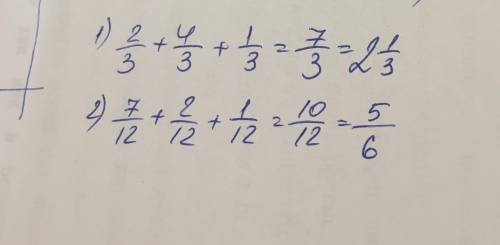 1) 2/3 + 4/3 + 1/3 = 7/3 = 2 1/3
2) 7/12 + 2/12 + 1/12 = 10/12 = 5/6